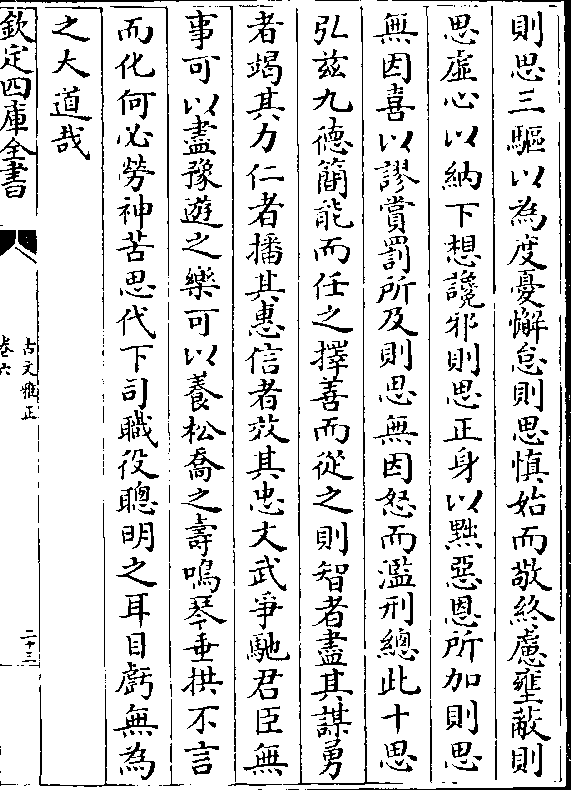 則思三驅以為度憂懈怠則思慎始而敬終慮壅蔽則
思虛心以納下想讒邪則思正身以黜惡恩所加則思
無因喜以謬賞罰所及則思無因怒而濫刑總此十思
弘茲九德簡能而任之擇善而從之則智者盡其謀勇
者竭其力仁者播其惠信者效其忠文武爭馳君臣無
事可以盡豫遊之樂可以養松喬之壽鳴琴垂拱不言
而化何必勞神苦思代下司職役聰明之耳目虧無為
之大道哉
欽定四庫全書
古文雅正
卷六
二十三